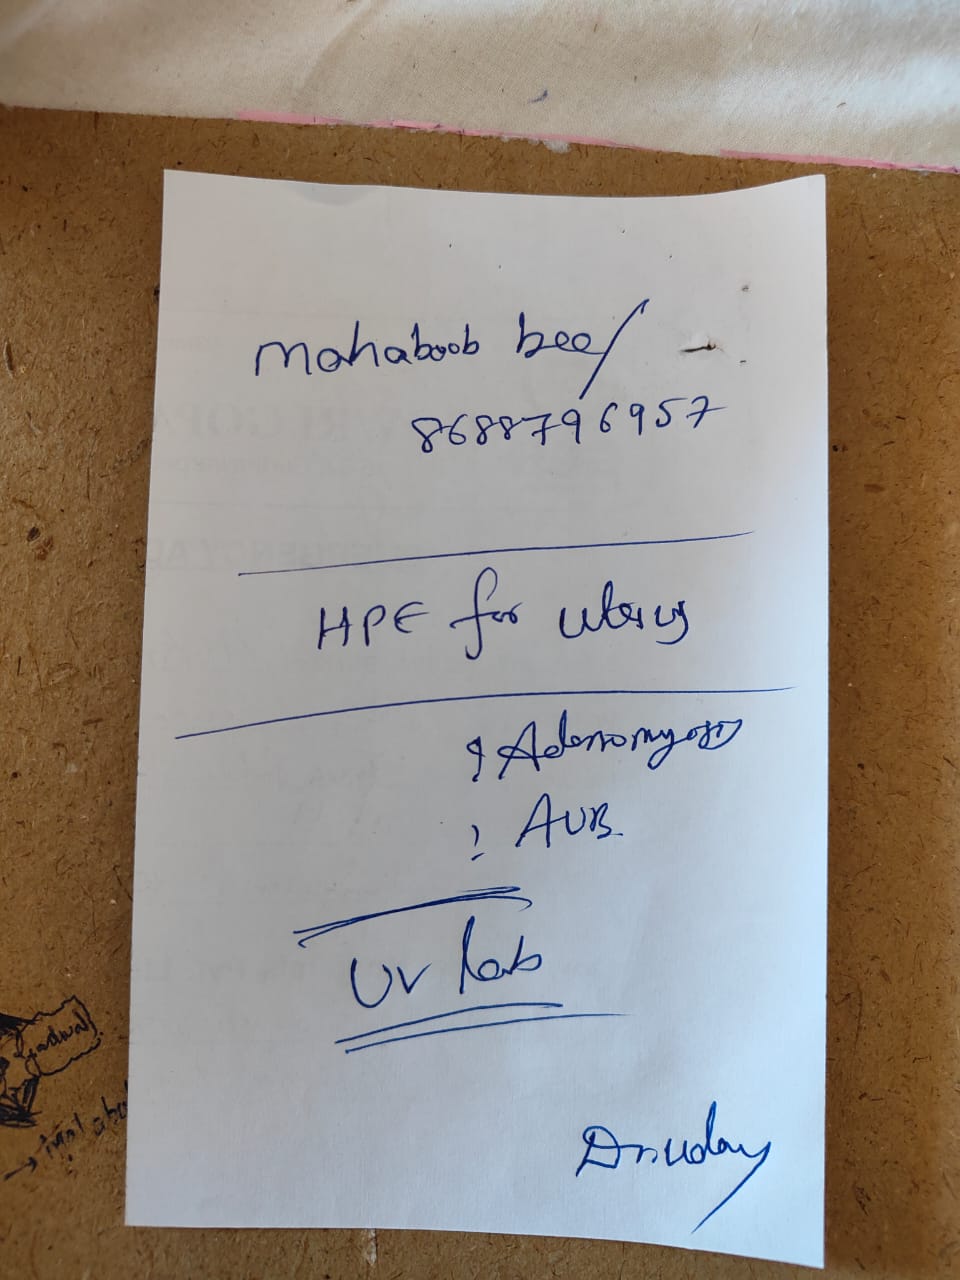 Mahaboob bee/
8688796957
HPE for uterus
? Adenomyosis
? AUB
UV lab
Dr. Uday